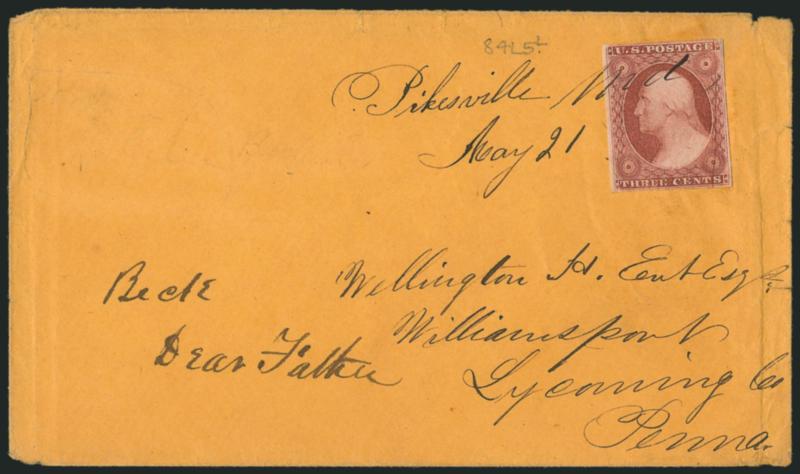 89L5
Pikesville Md
May 21
U.S. POSTAGE
THREE CENTS
Wellington H. Ent Esqr
Williamsport
Lycoming Co
Penna.
Beck
Dear Father